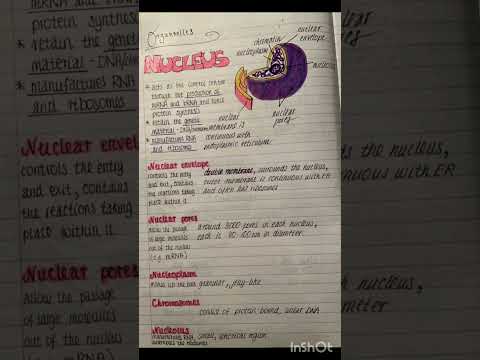 Organelles
NUCLEUS
chromatin
nucleoplasm
nuclear
envelope
nuclear
pores
* acts as the control center
through the production of
mRNA and tRNA and hence
protein synthesis
* retain the genetic
material - DNA/
* manufactures RNA
and ribosomes
nuclear
membrane is
continuous with
endoplasmic reticulum
Nuclear envelope
controls the entry
and exit, contains
the reactions taking
place within it
double membrane, surrounds the nucleus,
outer membrane is continuous with ER
and often has ribosomes
Nuclear pores
Allow the passage
of large molecules
out of the nucleus
(e.g. mRNA)
around 3000 pores in each nucleus,
each is 40-100 nm in diameter
Nucleoplasm
Makes up the bulk
granular, jelly-like
Chromosomes
consist of protein bound, linear DNA
Nucleolus
manufactures RNA
small, spherical region
assembles the ribosomes
protein synthesis
* retain the genetic
material - DNA/
* manufactures RNA
and ribosomes
Nuclear envelope
controls the entry
and exit, contains
the reactions taking
place within it
Nuclear pores
Allow the passage
of large molecules
out of the nucleus
the nucleus,
with ER
nucleus,
InShOt